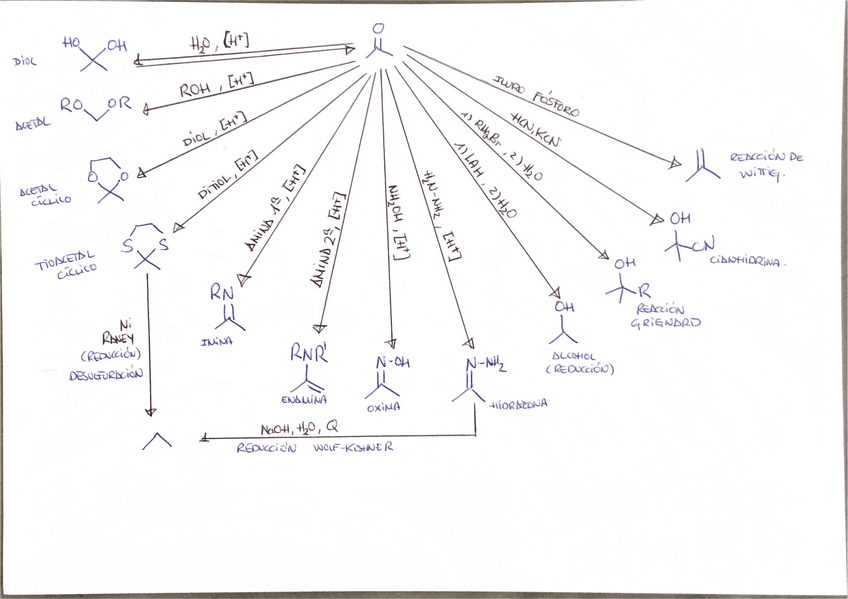 O
HO OH
H2O, [H+]
DIOL
ROH, [H+]
RO OR
ACETAL
DIOL, [H+]
O O
ACETAL
CÍCLICO
DITIOL, [H+]
S S
TIOACETAL
CÍCLICO
AMINA 1ª, [H+]
RN
IMINA
AMINA 2ª, [H+]
RNR'
ENAMINA
NH2OH, [H+]
N-OH
OXIMA
H2N-NH2, [H+]
N-NH2
HIDRAZONA
1) LAH, 2) H2O
OH
ALCOHOL
(REDUCCIÓN)
2) H2O
OH
R
REACCIÓN
GRIGNARD
HCN, KCN
OH
CN
CIANHIDRINA.
ILURO FÓSFORO
REACCIÓN DE
WITTIG.
Ni
RANEY
(REDUCCIÓN)
DESULFURACIÓN
NaOH, H2O, Q
REDUCCIÓN WOLF-KISHNER